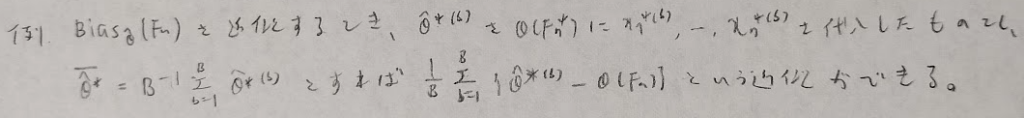 例. Bias_{θ̂}(F_n) を近似するとき、θ̂^{*(b)} を θ(F_n^*) に x_1^{*(b)}, …, x_n^{*(b)} を代入したものとし、
\overline{θ̂^*} = B^{-1} Σ_{b=1}^{B} θ̂^{*(b)} とすれば \frac{1}{B} Σ_{b=1}^{B} {θ̂^{*(b)} − θ(F_n)} という近似ができる。